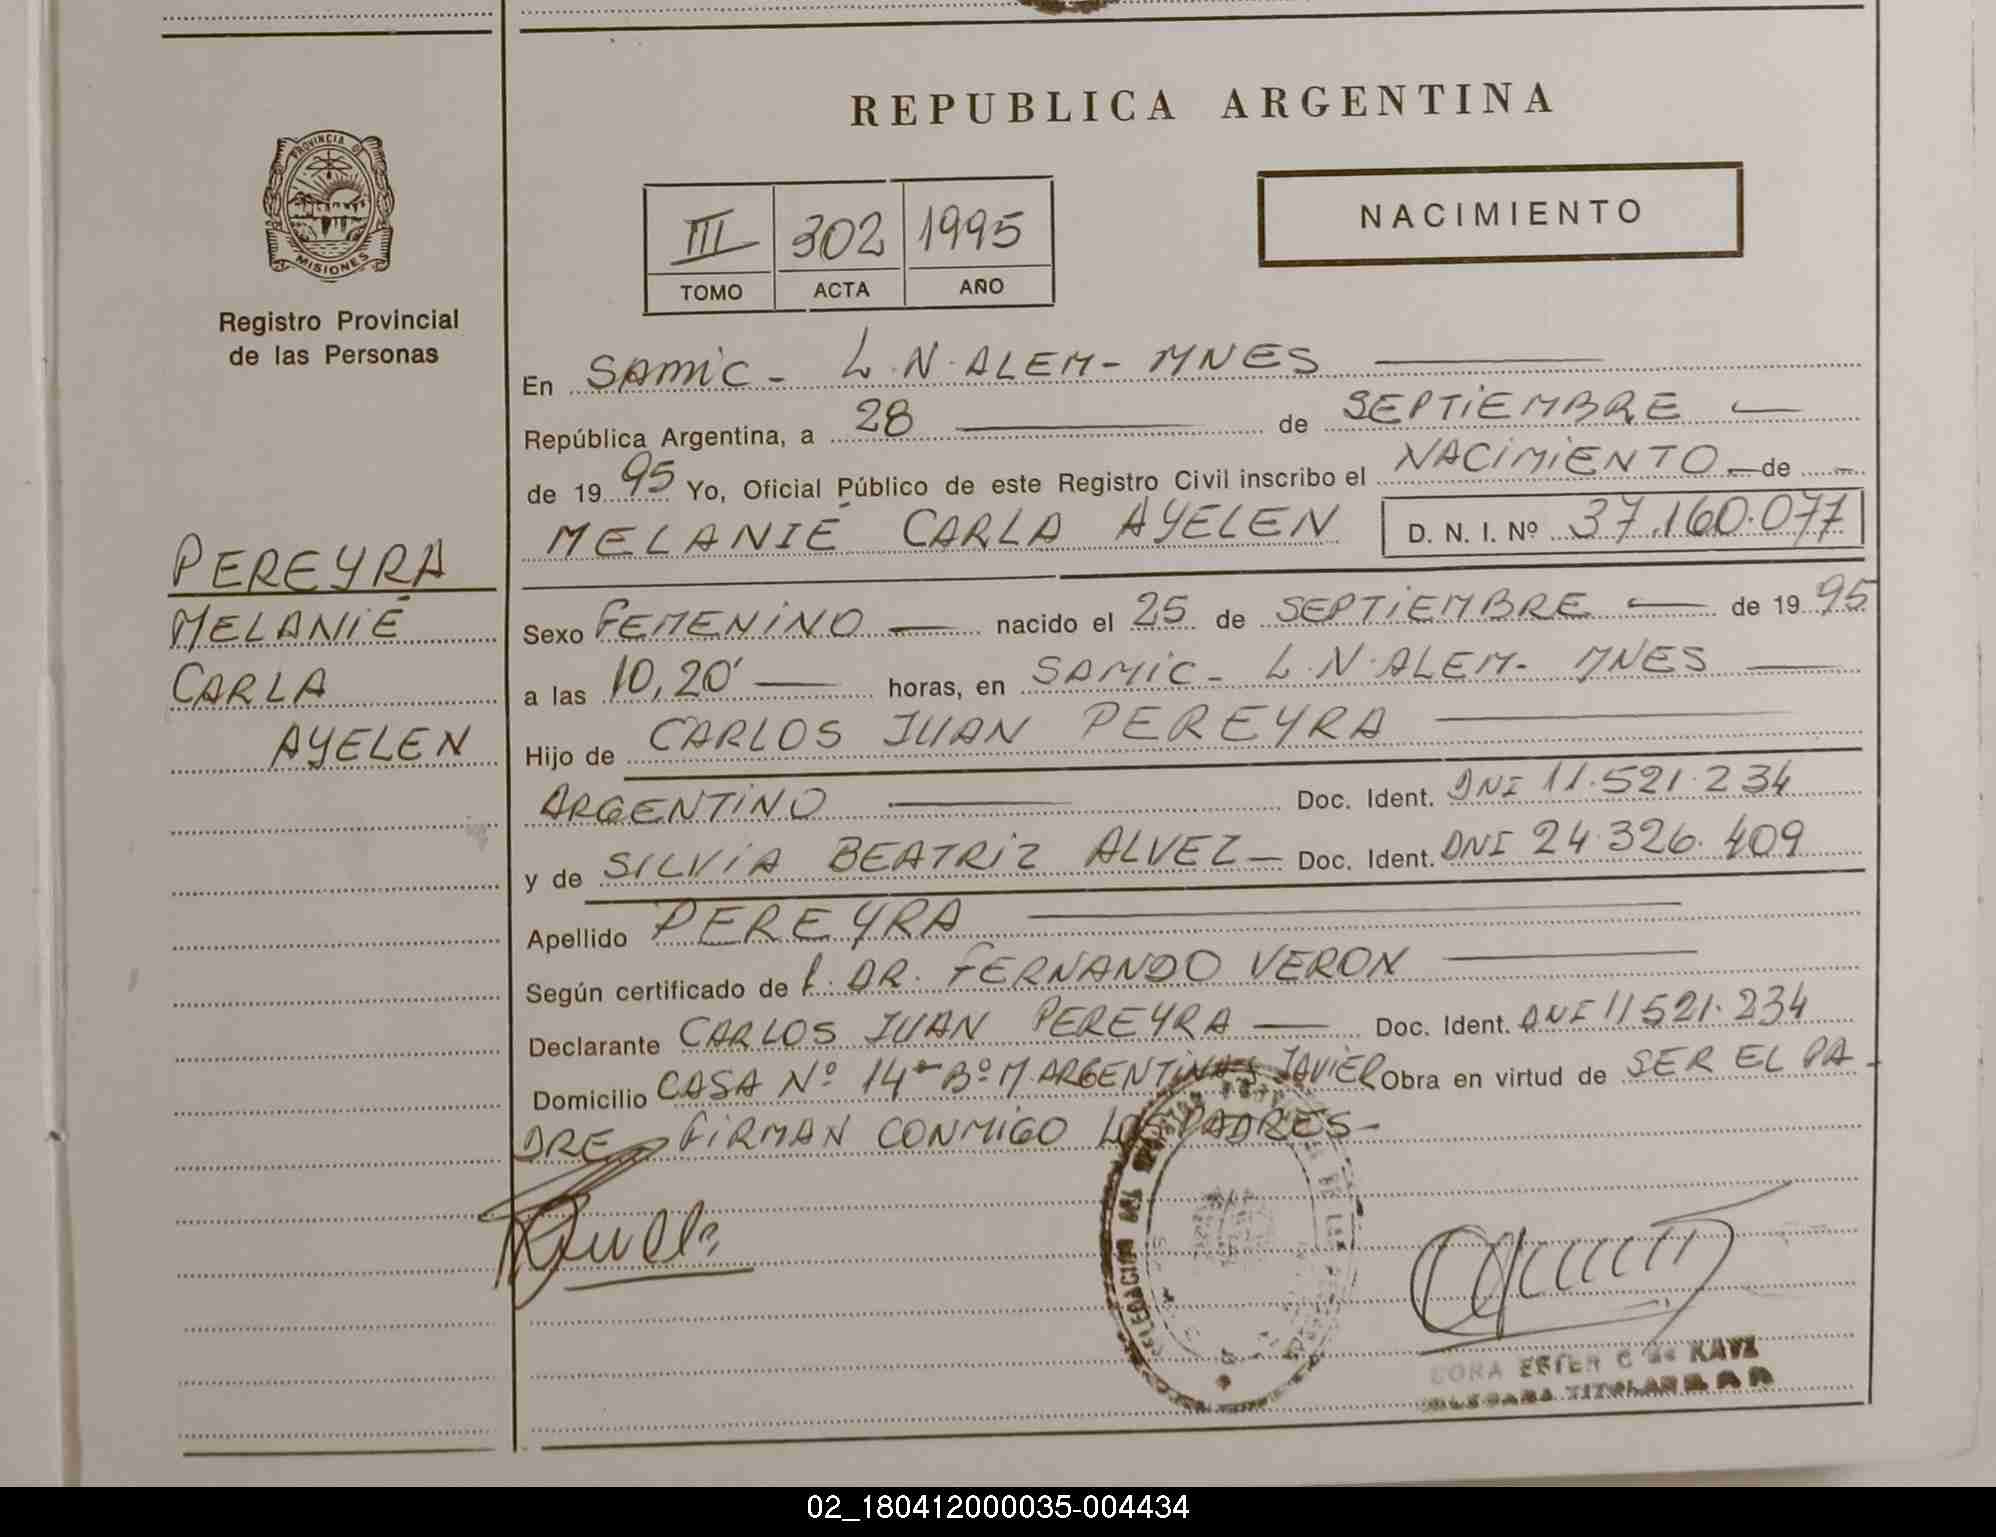 REPUBLICA ARGENTINA
PROVINCIA DE
MISIONES
Registro Provincial
de las Personas
III 302 1995
TOMO ACTA AÑO
NACIMIENTO
En SAMIC - L.N. ALEM - MNES
República Argentina, a 28 de SEPTIEMBRE
de 1995 Yo, Oficial Público de este Registro Civil inscribo el NACIMIENTO de
MELANIÉ CARLA AYELEN D. N. I. Nº 37.160.077
PEREYRA
MELANIÉ
CARLA
AYELEN
Sexo FEMENINO nacido el 25 de SEPTIEMBRE de 1995
a las 10,20' horas, en SAMIC - L.N. ALEM - MNES
Hijo de CARLOS JUAN PEREYRA
ARGENTINO Doc. Ident. DNI 11.521.234
y de SILVIA BEATRIZ ALVEZ - Doc. Ident. DNI 24.326.409
Apellido PEREYRA
Según certificado de DR. FERNANDO VERON
Declarante CARLOS JUAN PEREYRA Doc. Ident. DNI 11521.234
Domicilio CASA Nº 14 - Bº M. ARGENTINAS JAVIER Obra en virtud de SER EL PA-
DRE FIRMAN CONMIGO LOS PADRES -
DELEGACIÓN DEL
ESTER C. de KATZ
TITULAR
02_180412000035-004434